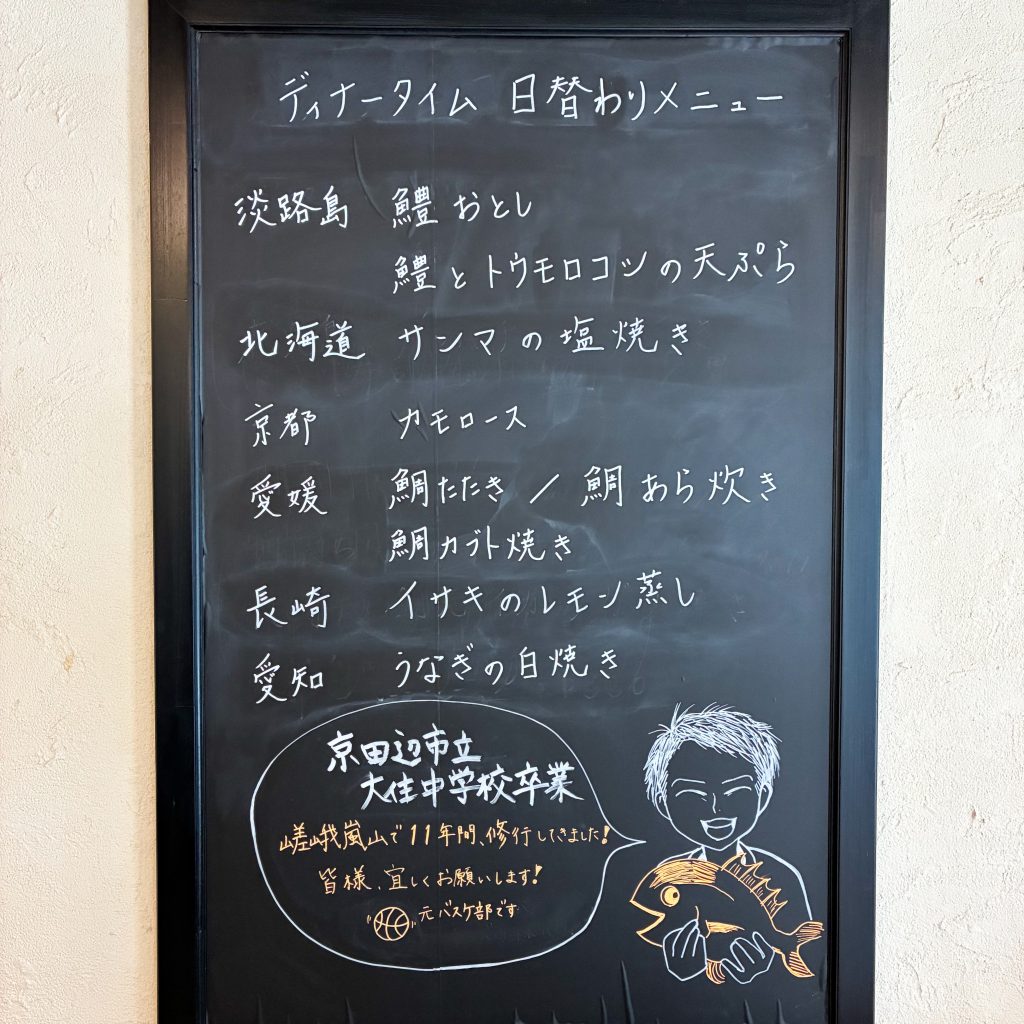 ディナータイム 日替わりメニュー
淡路島 鱧おとし
鱧とトウモロコシの天ぷら
北海道 サンマの塩焼き
京都 カモロース
愛媛 鯛たたき / 鯛あら炊き
鯛カブト焼き
長崎 イサキのレモン蒸し
愛知 うなぎの白焼き
京田辺市立
大住中学校卒業
嵯峨嵐山で11年間、修行してきました!
皆様、宜しくお願いします!
元バスケ部です